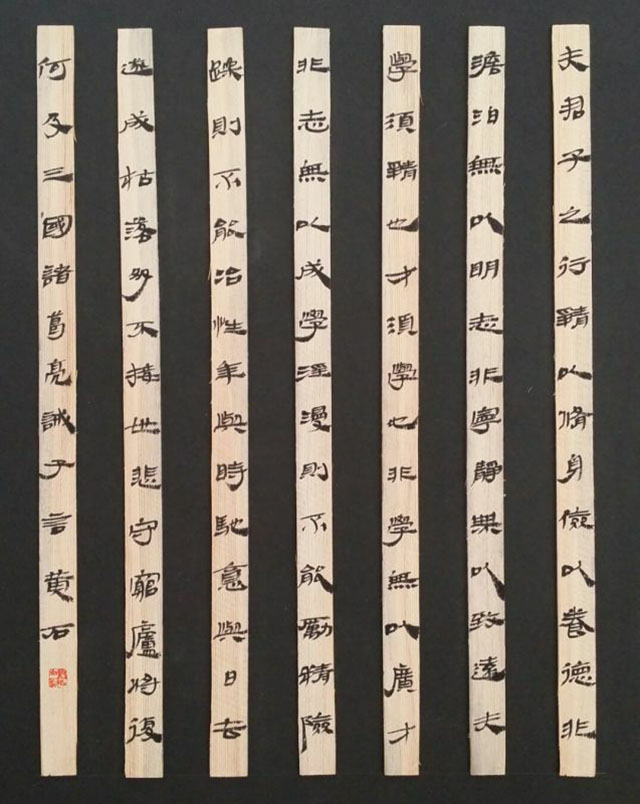 夫君子之行靜以脩身儉以養德非
澹泊無以明志非寧靜無以致遠夫
學須靜也才須學也非學無以廣才
非志無以成學淫漫則不能勵精險
躁則不能冶性年與時馳意與日去
遂成枯落多不接世悲守窮廬將復
何及三國諸葛亮誡子言黃石